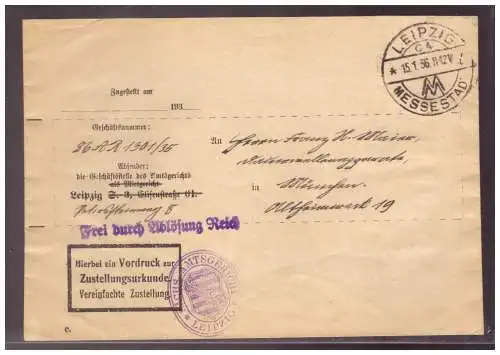 LEIPZIG
C 4
* 15.1.36.11-12V
MESSESTADT
Zugestellt am
193
Geschäftsnummer:
86 AR 1301/35
Absender:
die Geschäftsstelle des Amtsgerichts
als Mietgericht
Leipzig S. 3, Elisenstraße 64.
8
An Herrn Franz X. Maier,
in München
19
Frei durch Ablösung Reich
Hierbei ein Vordruck zur
Zustellungsurkunde
Vereinfachte Zustellung
SÄCHS. AMTSGERICHT
* LEIPZIG *